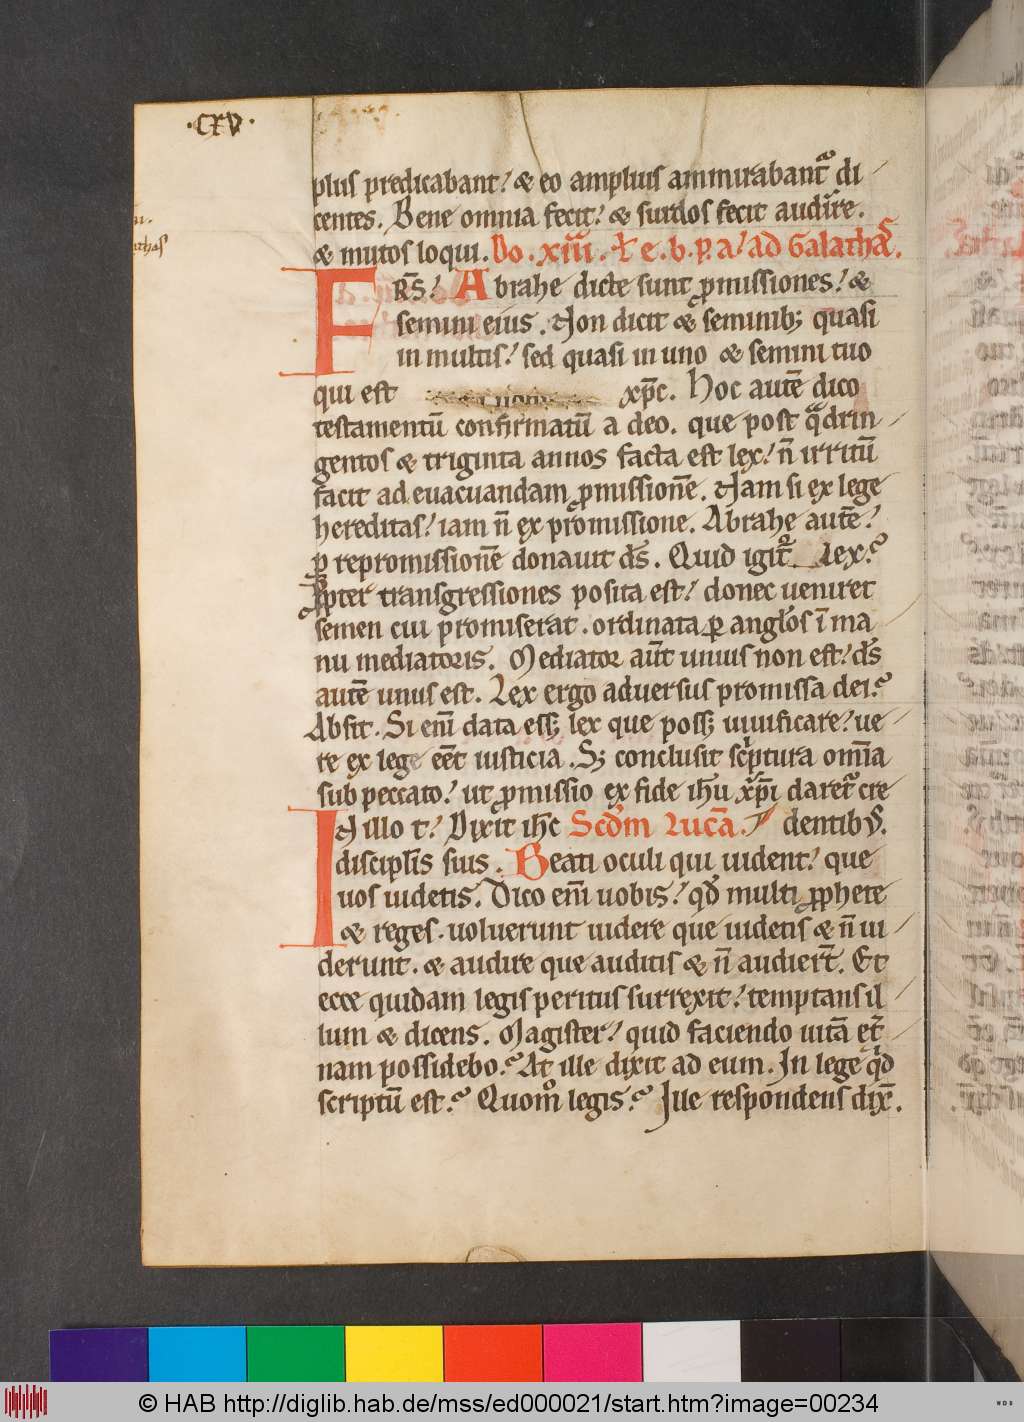 ·CXV·
plus predicabant. & eo amplius ammirabant᷑ di
centes. Bene omnia fecit. & surdos fecit audire.
& mutos loqui. Do. xiiii. e. b. p. a. ad Galathas.
FRS̄. Abrahe dicte sunt ꝓmissiones. &
semini eius. Non dicit & seminib; quasi
in multis. sed quasi in uno & semini tuo
qui est xp̄c. Hoc autē dico
testamentū confirmatū a deo. que post qͣdrin
gentos & triginta annos facta est lex. n̄ irritū
facit ad euacuandam ꝓmissionē. Nam si ex lege
hereditas. iam n̄ ex promissione. Abrahe autē.
ꝑ repromissionē donauit ds̄. Quid igit᷑ lex.
ꝓpter transgressiones posita est. donec ueniret
semen cui promiserat. ordinata ꝑ anglos ī ma
nu mediatoris. Mediator aūt unius non est. ds̄
autē unus est. Lex ergo aduersus promissa dei.
Absit. Si enī data ess; lex que poss; uiuificare. ue
re ex lege eēt iusticia. S; conclusit scͥptura om̄ia
sub peccato. ut ꝓmissio ex fide ih̄u xp̄i daret᷑ cre
IN illo t. Dixit ih̄c Scd̄m Lucā. dentibꝰ.
discipl̄is suis. Beati oculi qui uident. que
uos uidetis. Dico enī uobis. qd̄ multi ꝓphete
& reges. uoluerunt uidere que uidetis & n̄ ui
derunt. & audire que auditis & n̄ audier̄t. Et
ecce quidam legis peritus surrexit. temptans il
lum & dicens. Magister. quid faciendo uitā et̄
nam possidebo. At ille dixit ad eum. In lege qͥd
scriptū est. Quom̊ legis. Ille respondens dix̄.
© HAB http://diglib.hab.de/mss/ed000021/start.htm?image=00234